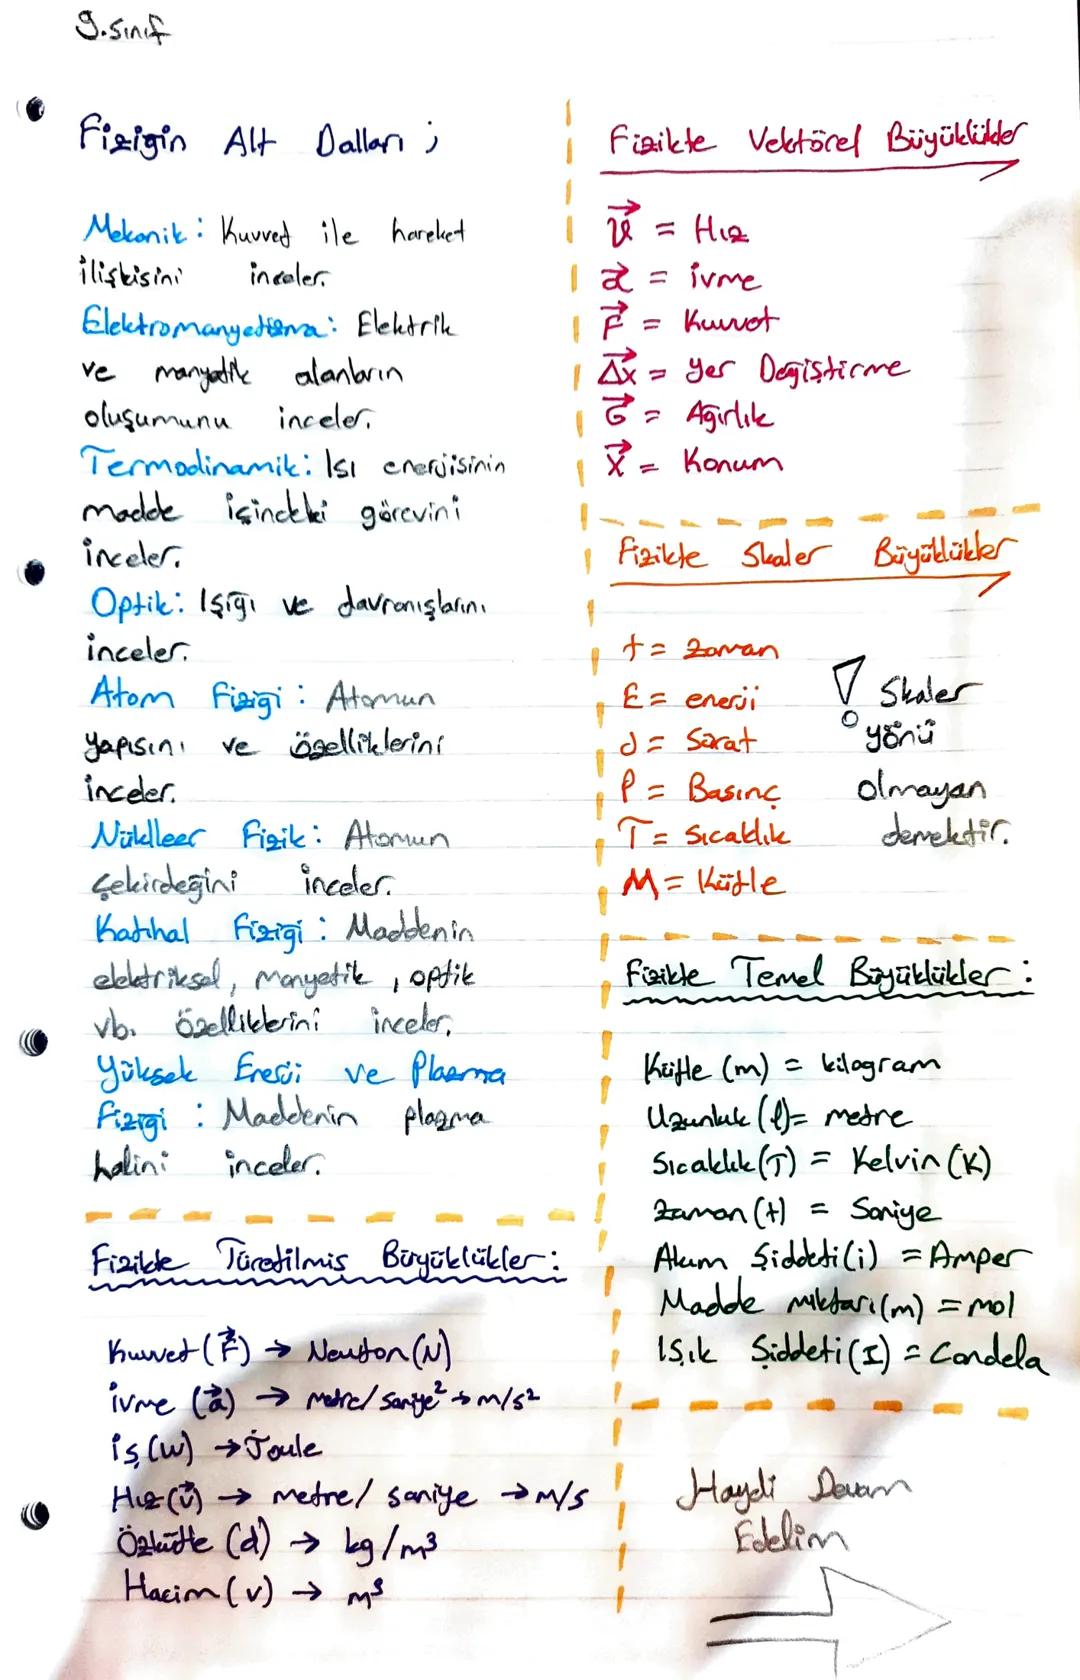 9.sınıf
Fiziğin Alt Dalları ;
Mekanik: Kuvvet ile hareket
ilişkisini inceler.
Elektromanyetizma: Elektrik
ve manyetik alanların
oluşumunu inceler.
Termodinamik: Isı enerjisinin
madde içindeki görevini
inceler.
Optik: Işığı ve davranışlarını
inceler.
Atom Fiziği : Atomun
yapısını ve özelliklerini
inceler.
Nüklleer Fizik: Atomun
çekirdeğini inceler.
Katıhal Fiziği : Maddenin
elektriksel, manyetik, optik
vb. özelliklerini inceler.
Yüksek Enerji ve Plazma
Fiziği : Maddenin plazma
halini inceler.
Fizikte Türetilmiş Büyüklükler:
Kuvvet (F⃗) → Newton (N)
ivme (a⃗) → metre/saniye² → m/s²
iş (w) → Joule
Hız (v⃗) → metre/saniye → m/s
Özkütle (d) → kg/m³
Hacim (v) → m³
Fizikte Vektörel Büyüklükler
v⃗ = Hız
a⃗ = ivme
F⃗ = Kuvvet
Δx⃗ = Yer Değiştirme
G⃗ = Ağırlık
X⃗ = Konum
Fizikte Skaler Büyüklükler
t = zaman
E = enerji
d = Sürat
P = Basınç
T = Sıcaklık
M = Kütle
! Skaler
yönü
olmayan
demektir.
Fizikte Temel Büyüklükler :
Kütle (m) = kilogram
Uzunluk (l) = metre
Sıcaklık (T) = Kelvin (K)
Zaman (t) = Saniye
Akım Şiddeti (i) = Amper
Madde miktarı (m) = mol
Işık Şiddeti (I) = Candela
Haydi Devam
Edelim